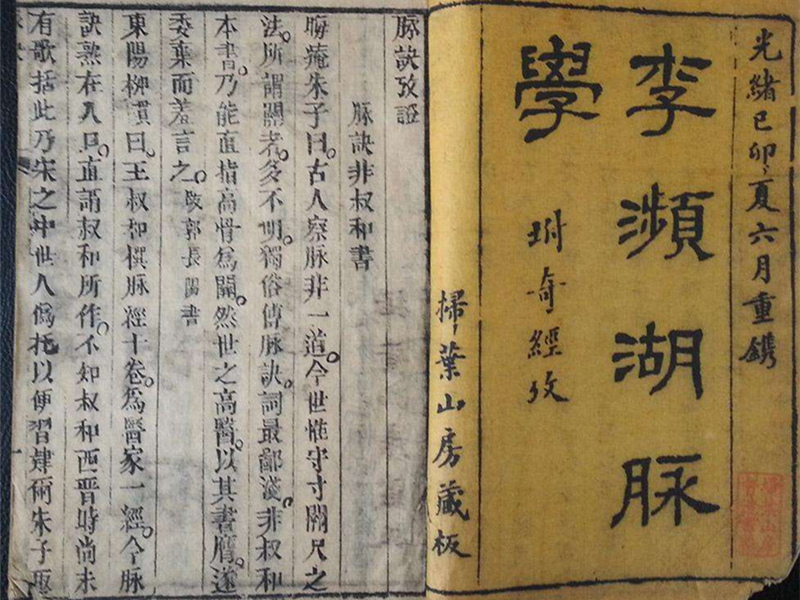 光緒己卯夏六月重鐫
李瀕湖脉
學
坿奇經攷
掃葉山房藏板
脉訣攷證
脉訣非叔和書
晦庵朱子曰。古人察脉非一道。今世惟守寸關尺之
法。所謂關者。多不明。獨俗傳脉訣。詞最鄙淺。非叔和
本書。乃能直指高骨爲關。然世之高醫。以其書贋。遂
委棄而羞言之。跋郭長陽書
東陽柳貫曰。王叔和撰脉經十卷。爲醫家一經。今脉
訣熟在人口。直謂叔和所作。不知叔和西晉時尚未
有歌括此乃宋之中世人僞托以便習肄爾朱子取